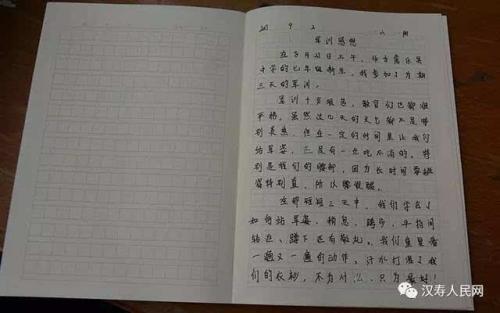 军训感想
在8月21日上午，作为
中学的七年级新生，我参加了为期
三天的军训。
军训十分艰苦，教官们也都很
平格，虽然这几天的天气都不是特
别炎热，但在一定的时间里让我们
站军姿，三是有一点吃不消的，特
别是我们的腰部，因为长时间要挺
得特别直，所以腰酸腿
在那短短三天中，我们学会了
如何站军姿、稍息、跨步、平指间
转法、蹲下还有敬礼。我们重复着
一遍又一遍的动作，汗水打湿了我
们的衣衫，不为什么，只为最好！
汉寿人民网